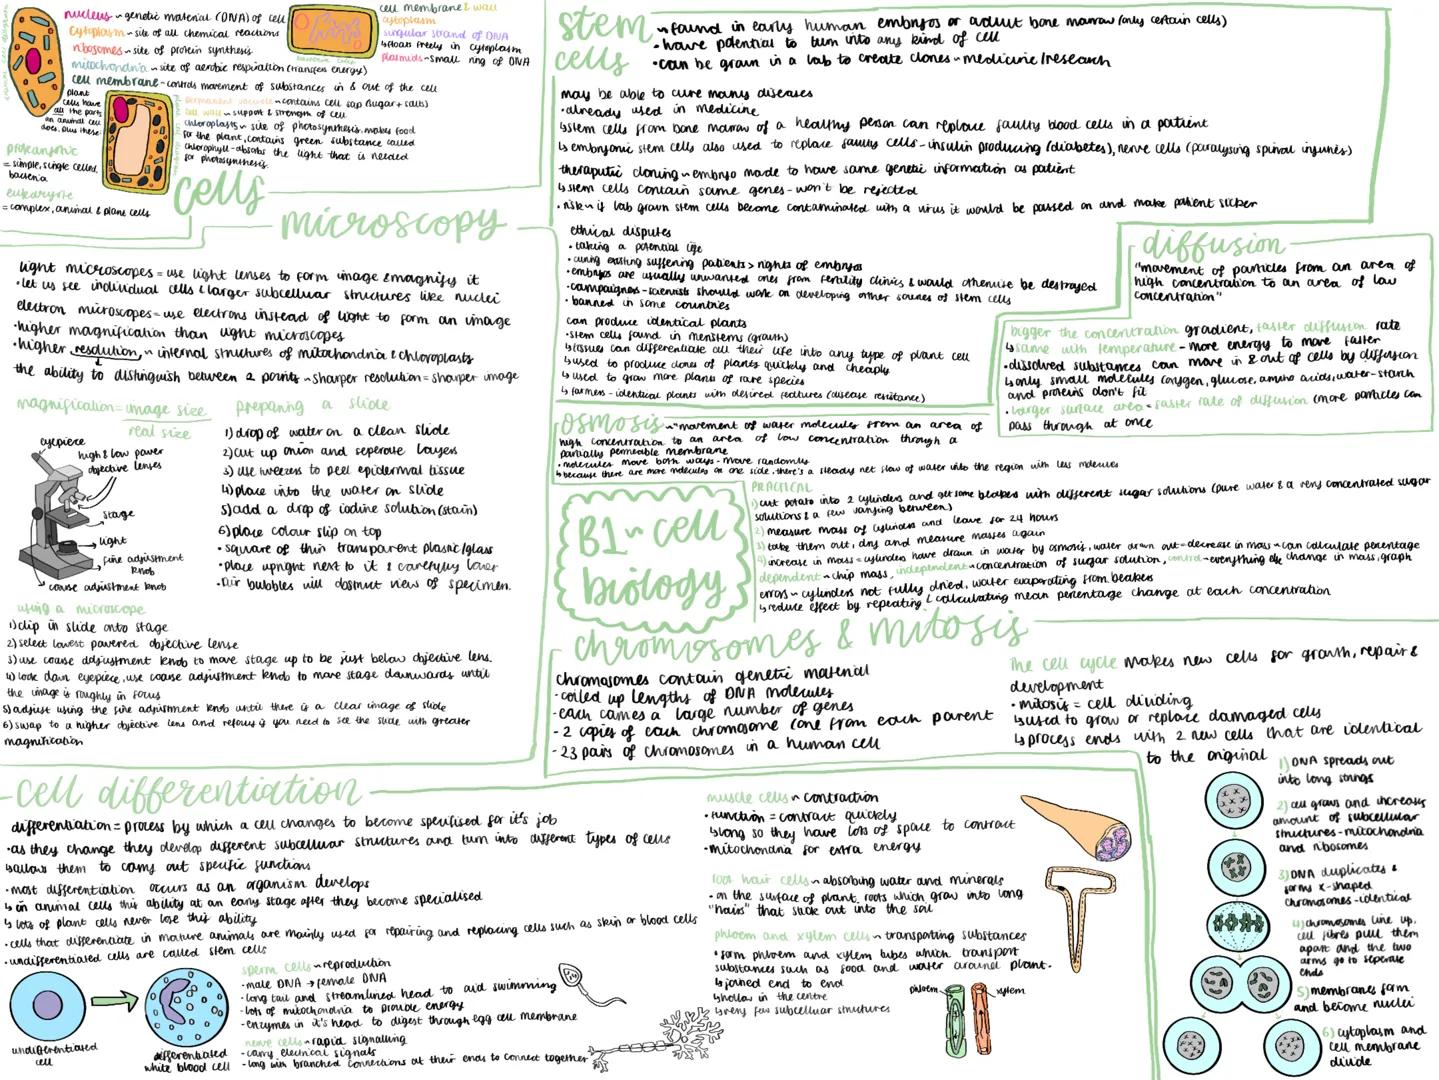 nucleus ~ genetic material (DNA) of cell
cytoplasm ~ site of all chemical reactions
ribosomes ~ site of protein synthesis
mitochondria ~ site of aerobic respiration (transfers energy)
cell membrane - controls movement of substances in & out of the cell
plant
cells have
all the parts
an animal cell
does, plus these:
permanent vacuole ~ contains cell sap (sugar + salts)
cell wall ~ support & strength of cell
chloroplasts ~ site of photosynthesis, makes food
for the plant, contains green substance called
chlorophyll - absorbs the light that is needed
for photosynthesis.
cell membrane & wall
cytoplasm
singular strand of DNA
↳ floats freely in cytoplasm
plasmids ~ small ring of DNA
prokaryotic
= simple, single celled,
bacteria
eukaryotic
= complex, animal & plane cells
cells
microscopy
light microscopes = use light lenses to form image & magnify it
• let us see individual cells & larger subcellular structures like nuclei
electron microscopes = use electrons instead of light to form an image
• higher magnification than light microscopes
• higher resolution, ~ internal structures of mitochondria & chloroplasts
the ability to distinguish between 2 points ~ sharper resolution = sharper image
magnification = image size
real size
eyepiece
high & low power
objective lenses
stage
light
fine adjustment
knob
coarse adjustment knob
preparing a slide
1) drop of water on a clean slide
2) cut up onion and seperate layers
3) use tweezers to peel epidermal tissue
4) place into the water on slide
5) add a drop of iodine solution (stain)
6) place colour slip on top
• square of thin transparent plastic/glass
• place upright next to it & carefully lower
• air bubbles will obstruct view of specimen.
using a microscope
1) clip in slide onto stage
2) select lowest powered objective lense
3) use coarse adjustment knob to move stage up to be just below objective lens.
4) look down eyepiece, use coarse adjustment knob to move stage downwards until
the image is roughly in focus
5) adjust using the fine adjustment knob until there is a clear image of slide
6) swap to a higher objective lens and refocus if you need to see the slide with greater
magnification
stem
cells
~ found in early human embryos or adult bone marrow (only certain cells)
• have potential to turn into any kind of cell
• can be grown in a lab to create clones ~ medicine/research
may be able to cure many diseases
• already used in medicine
↳ stem cells from bone marrow of a healthy person can replace faulty blood cells in a patient
↳ embryonic stem cells also used to replace faulty cells - insulin producing (diabetes), nerve cells (paralysing spinal injuries)
theraputic cloning ~ embryo made to have same genetic information as patient
↳ stem cells contain same genes - won't be rejected
• risk ~ if lab grown stem cells become contaminated with a virus it would be passed on and make patient sicker
ethical disputes
• taking a potential life
• curing existing suffering patients > rights of embryos
• embryos are usually unwanted ones from fertility clinics & would otherwise be destroyed
• campaigners - scientists should work on developing other sources of stem cells
• banned in some countries
can produce identical plants
• stem cells found in meristems (growth)
↳ tissues can differentiate all their life into any type of plant cell
↳ used to produce clones of plants quickly and cheaply
↳ used to grow more plants of rare species
↳ farmers - identical plants with desired features (disease resistance)
diffusion
"movement of particles from an area of
high concentration to an area of low
concentration"
bigger the concentration gradient, faster diffusion rate
↳ same with temperature - more energy to move faster
• dissolved substances can move in & out of cells by diffusion
↳ only small molecules (oxygen, glucose, amino acids, water - starch
and proteins don't fit
• larger surface area = faster rate of diffusion (more particles can
pass through at once
osmosis ~ "movement of water molecules from an area of
high concentration to an area of low concentration through a
partially permeable membrane
• molecules move both ways - move randomly
↳ because there are more molecules on one side, there's a steady net flow of water into the region with less molecules
PRACTICAL
1) cut potato into 2 cylinders and get some beakers with different sugar solutions (pure water & a very concentrated sugar
solutions & a few varying between)
2) measure mass of cylinders and leave for 24 hours
3) take them out, dry and measure masses again
4) increase in mass = cylinders have drawn in water by osmosis, water drawn out = decrease in mass ~ can calculate percentage
change in mass, graph
dependent ~ chip mass, independent ~ concentration of sugar solution, control ~ everything else
errors ~ cylinders not fully dried, water evaporating from beakers
↳ reduce effect by repeating & calculating mean percentage change at each concentration
B1 ~ cell
biology
chromosomes & mitosis
chromosomes contain genetic material
- coiled up lengths of DNA molecules
- each carries a large number of genes
- 2 copies of each chromosome (one from each parent
- 23 pairs of chromosomes in a human cell
the cell cycle makes new cells for growth, repair &
development
• mitosis = cell dividing
↳ used to grow or replace damaged cells
↳ process ends with 2 new cells that are identical
to the original
1) DNA spreads out
into long strings
2) cell grows and increases
amount of subcellular
structures - mitochondria
and ribosomes
3) DNA duplicates &
forms x-shaped
chromosomes - identical
4) chromosomes line up,
cell fibres pull them
apart and the two
arms go to seperate
ends
5) membranes form
and become nuclei
6) cytoplasm and
cell membrane
divide
cell differentiation
differentiation = process by which a cell changes to become specified for it's job
• as they change they develop different subcellular structures and turn into different types of cells
↳ allows them to carry out specific functions
• most differentiation occurs as an organism develops
↳ in animal cells this ability at an early stage after they become specialised
↳ lots of plant cells never lose this ability
• cells that differentiate in mature animals are mainly used for repairing and replacing cells such as skin or blood cells
• undifferentiated cells are called stem cells
undifferentiated
cell
differentiated
white blood cell
sperm cells ~ reproduction
- male DNA → female DNA
- long tail and streamlined head to aid swimming
- lots of mitochondria to provide energy
- enzymes in it's head to digest through egg cell membrane
nerve cells ~ rapid signalling
- carry electrical signals
- long with branched connections at their ends to connect together
muscle cells ~ contraction
• function = contract quickly
↳ long so they have lots of space to contract
• mitochondria for extra energy
root hair cells ~ absorbing water and minerals
- on the surface of plant roots which grow into long
"hairs" that stick out into the soil
phloem and xylem cells ~ transporting substances
• form phloem and xylem tubes which transport
substances such as food and water around plant.
↳ joined end to end
↳ hollow in the centre
↳ very few subcellular structures
phloem
xylem